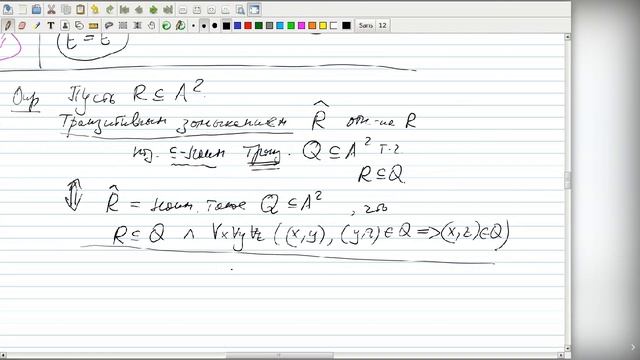 t = t
Sans 12
Опр Пусть R ⊆ A².
Транзитивным замыканием R̂ отн-ия R
наз. ⊆-наим транз. Q ⊆ A² т.ч.
R ⊆ Q.
⇕ R̂ = наим. такое Q ⊆ A², что
R ⊆ Q ∧ ∀x∀y∀z ((x,y), (y,z) ∈ Q ⇒ (x,z) ∈ Q)